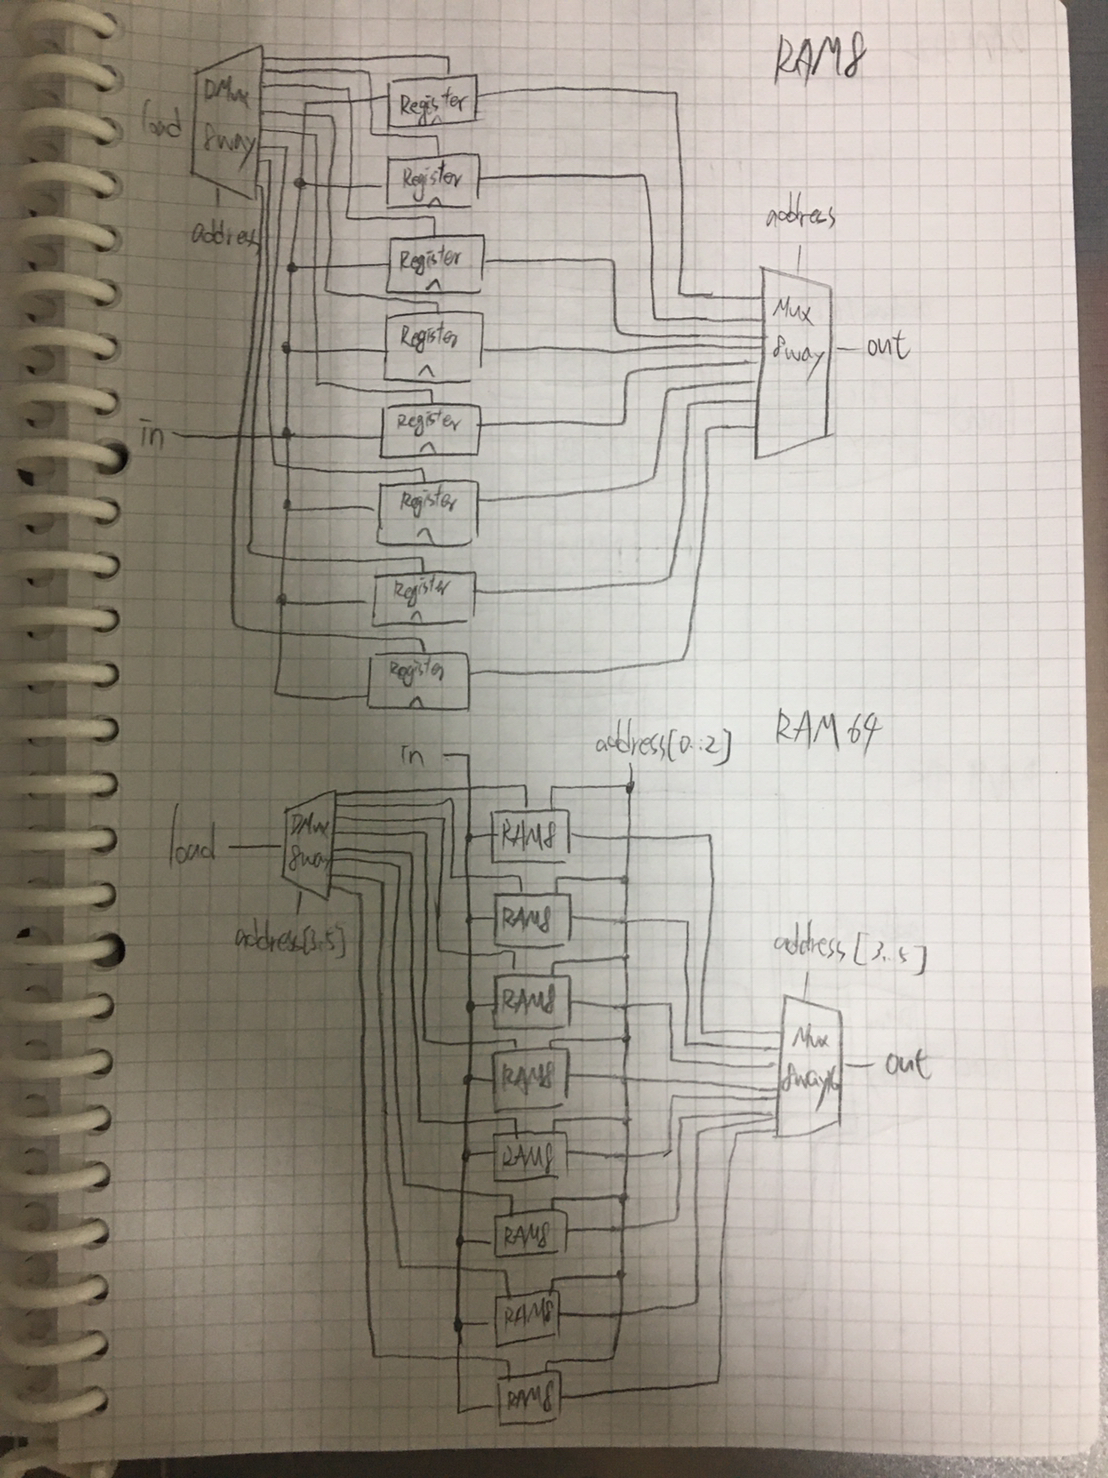 RAM8
DMux
8way
load
address
Register
Register
Register
Register
Register
Register
Register
Register
in
address
Mux
8way
out
RAM64
in
address[0..2]
DMux
8way
load
address[3..5]
RAM8
RAM8
RAM8
RAM8
RAM8
RAM8
RAM8
RAM8
address[3..5]
Mux
8way16
out